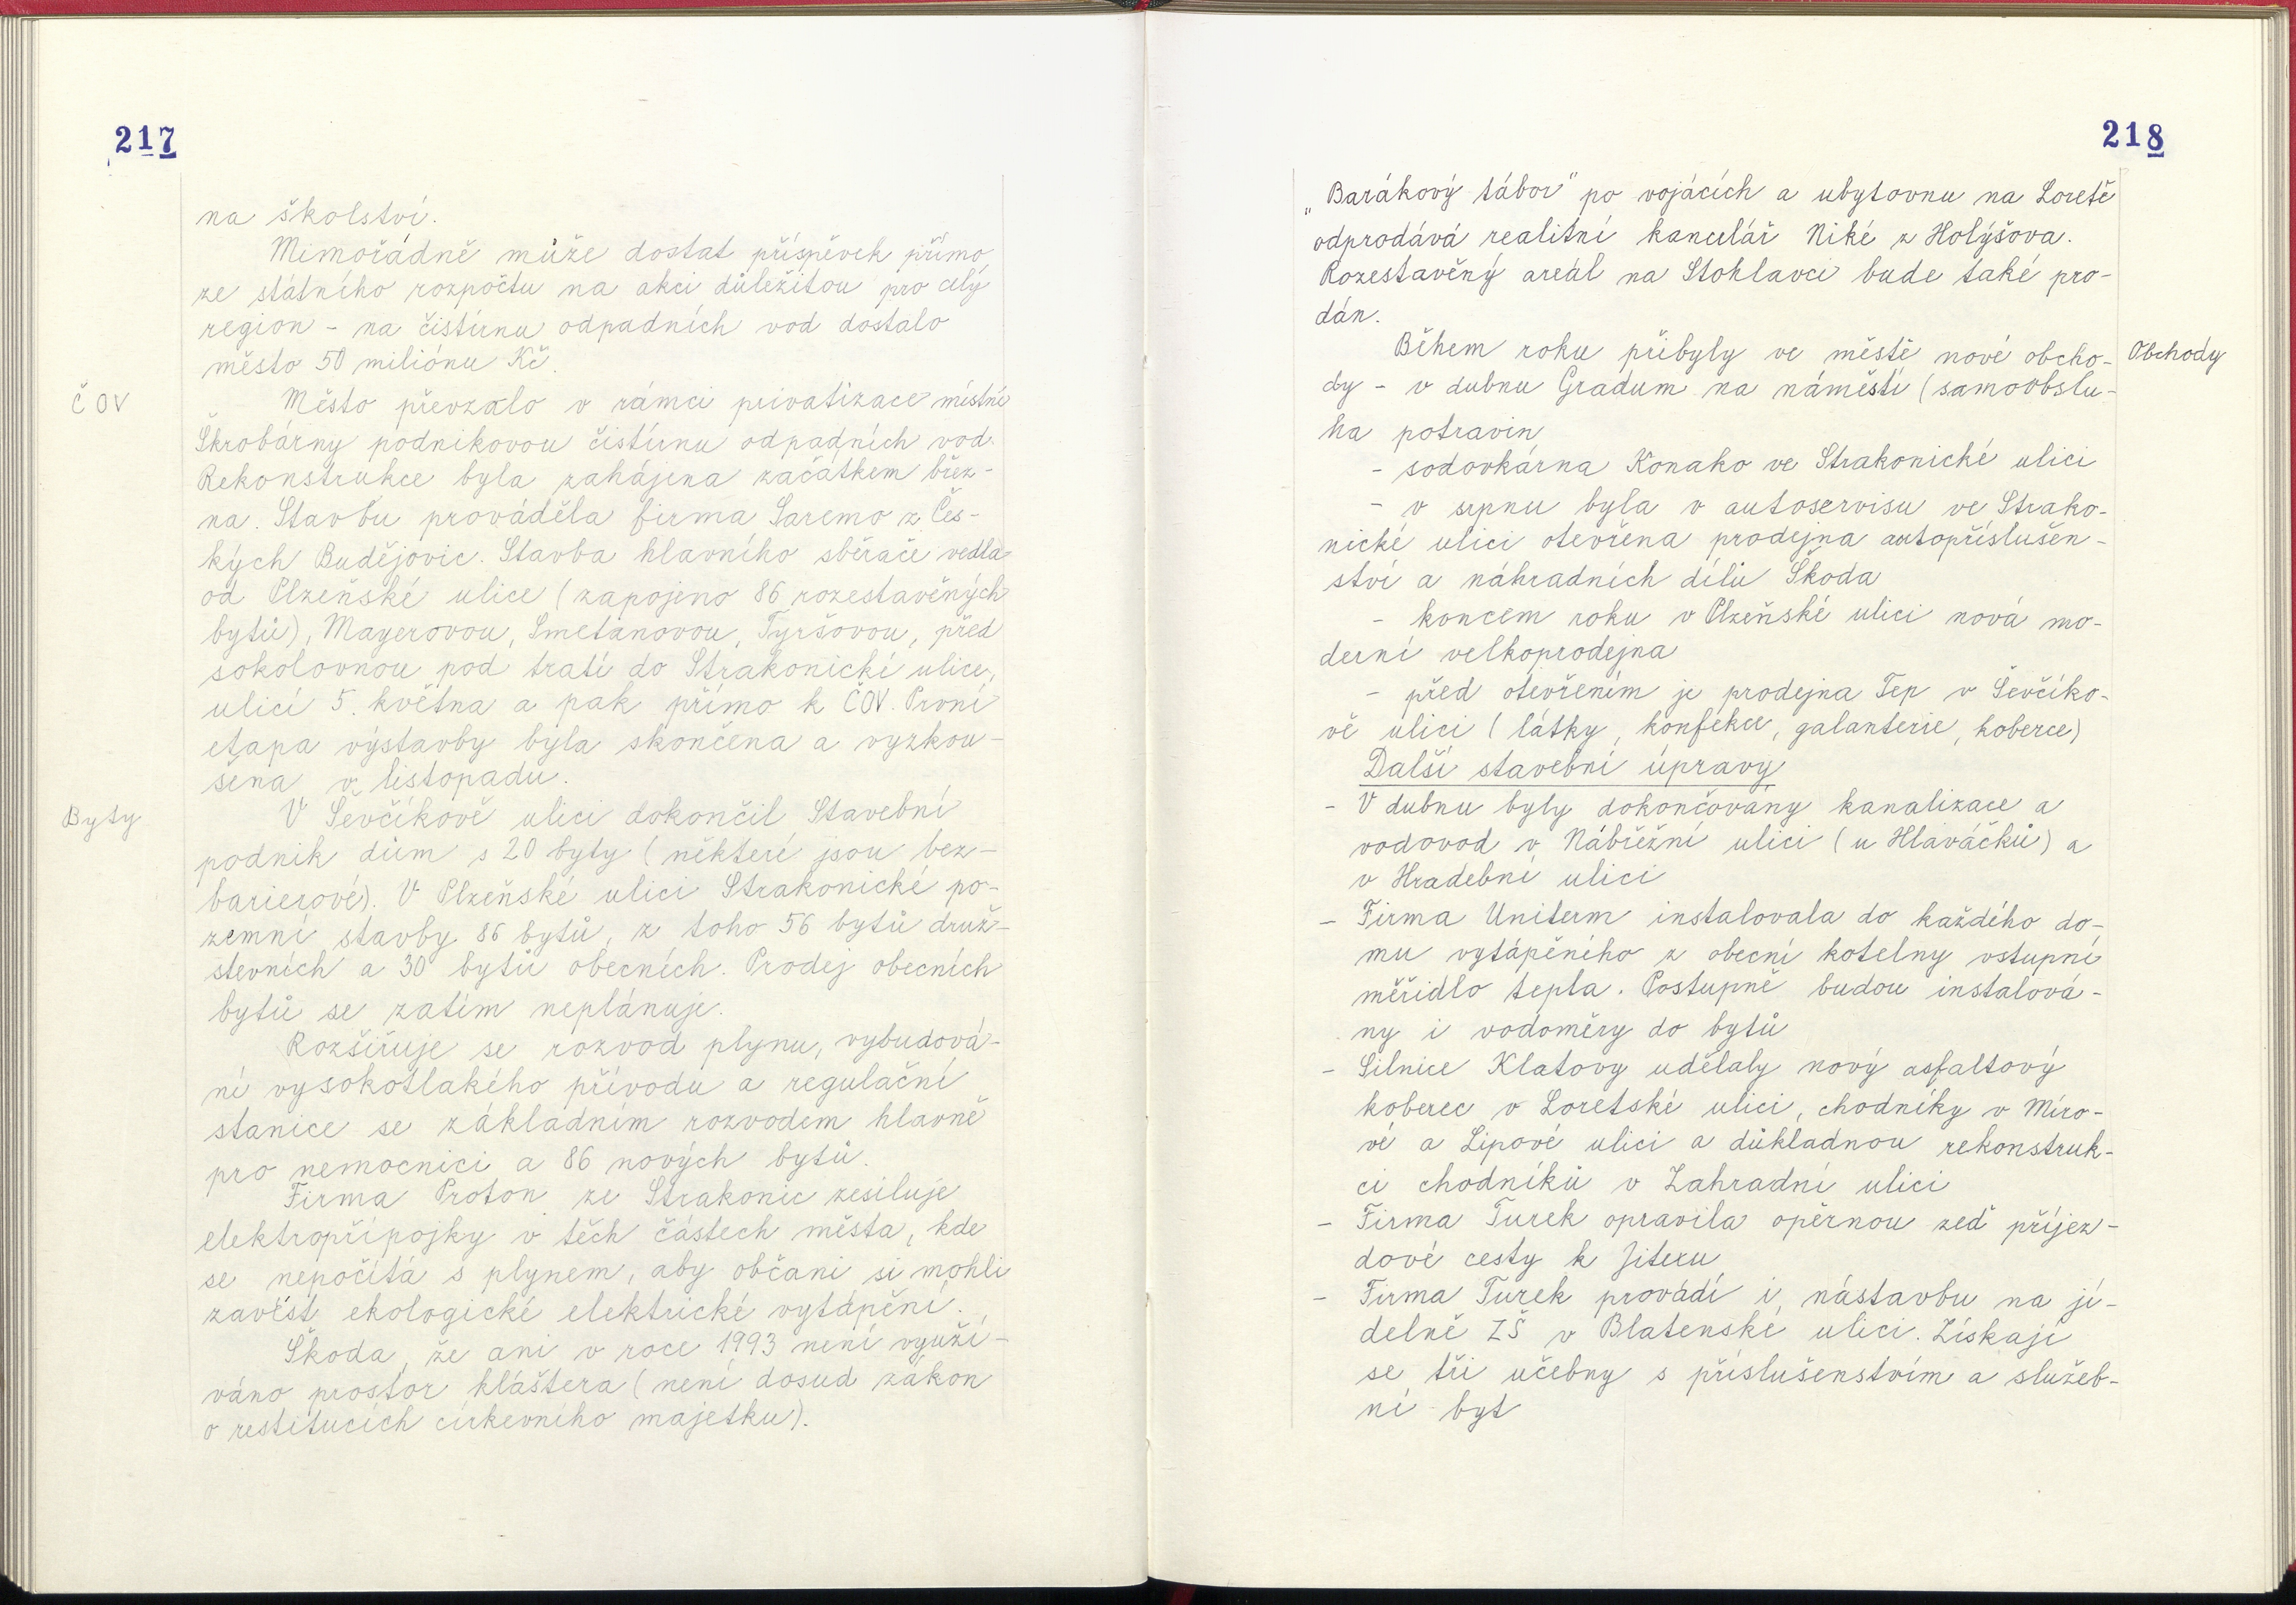 217
na školství.
Mimořádně může dostat příspěvek přímo
ze státního rozpočtu na akci důležitou pro celý
region - na čistírnu odpadních vod dostalo
město 50 miliónu Kč.
ČOV
Město převzalo v rámci privatizace místní
Škrobárny podnikovou čistírnu odpadních vod.
Rekonstrukce byla zahájena začátkem břez-
na. Stavbu prováděla firma Saremo z Čes-
kých Budějovic. Stavba hlavního sběrače vedla
od Plzeňské ulice (zapojeno 86 rozestavěných
bytů), Mayerovou, Smetanovou, Tyršovou, před
sokolovnou pod tratí do Strakonické ulice,
ulicí 5. května a pak přímo k ČOV. První
etapa výstavby byla skončena a vyzkou-
šena v listopadu.
Byty
V Ševčíkově ulici dokončil Stavební
podnik dům s 20 byty (některé jsou bez-
barierové). V Plzeňské ulici Strakonické po-
zemní stavby 86 bytů, z toho 56 bytů druž-
stevních a 30 bytů obecních. Prodej obecních
bytů se zatím neplánuje.
Rozšiřuje se rozvod plynu, vybudová-
ní vysokotlakého přívodu a regulační
stanice se základním rozvodem hlavně
pro nemocnici a 86 nových bytů.
Firma Proton ze Strakonic zesiluje
elektropřípojky v těch částech města, kde
se nepočítá s plynem, aby občani si mohli
zavést ekologické elektrické vytápění.
Škoda, že ani v roce 1993 není využí-
váno prostor kláštera (není dosud zákon
o restitucích církevního majetku).
218
„Barákový tábor" po vojácích a ubytovnu na Loretě
odprodává realitní kancelář Niké z Holýšova.
Rozestavěný areál na Stohlavci bude také pro-
dán.
Během roku přibyly ve městě nové obcho-
Obchody
dy - v dubnu Gradum na náměstí (samoobslu-
ha potravin
- sodovkárna Konako ve Strakonické ulici
- v srpnu byla v autoservisu ve Strako-
nické ulici otevřena prodejna autopříslušen-
ství a náhradních dílů Škoda
- koncem roku v Plzeňské ulici nová mo-
derní velkoprodejna
- před otevřením je prodejna Tep v Ševčíko-
vě ulici (látky, konfekce, galanterie, koberce)
Další stavební úpravy
- V dubnu byly dokončovány kanalizace a
vodovod v Nábřežní ulici (u Hlaváčků) a
v Hradební ulici
- Firma Uniterm instalovala do každého do-
mu vytápěného z obecní kotelny vstupní
měřidlo tepla. Postupně budou instalová-
ny i vodoměry do bytů
- Silnice Klatovy udělaly nový asfaltový
koberec v Loretské ulici, chodníky v Míro-
vé a Lipové ulici a důkladnou rekonstruk-
ci chodníků v Zahradní ulici
- Firma Turek opravila opěrnou zeď příjez-
dové cesty k Jitexu
- Firma Turek provádí i nástavbu na jí-
delně ZŠ v Blatenské ulici. Získají
se tři učebny s příslušenstvím a služeb-
ní byt